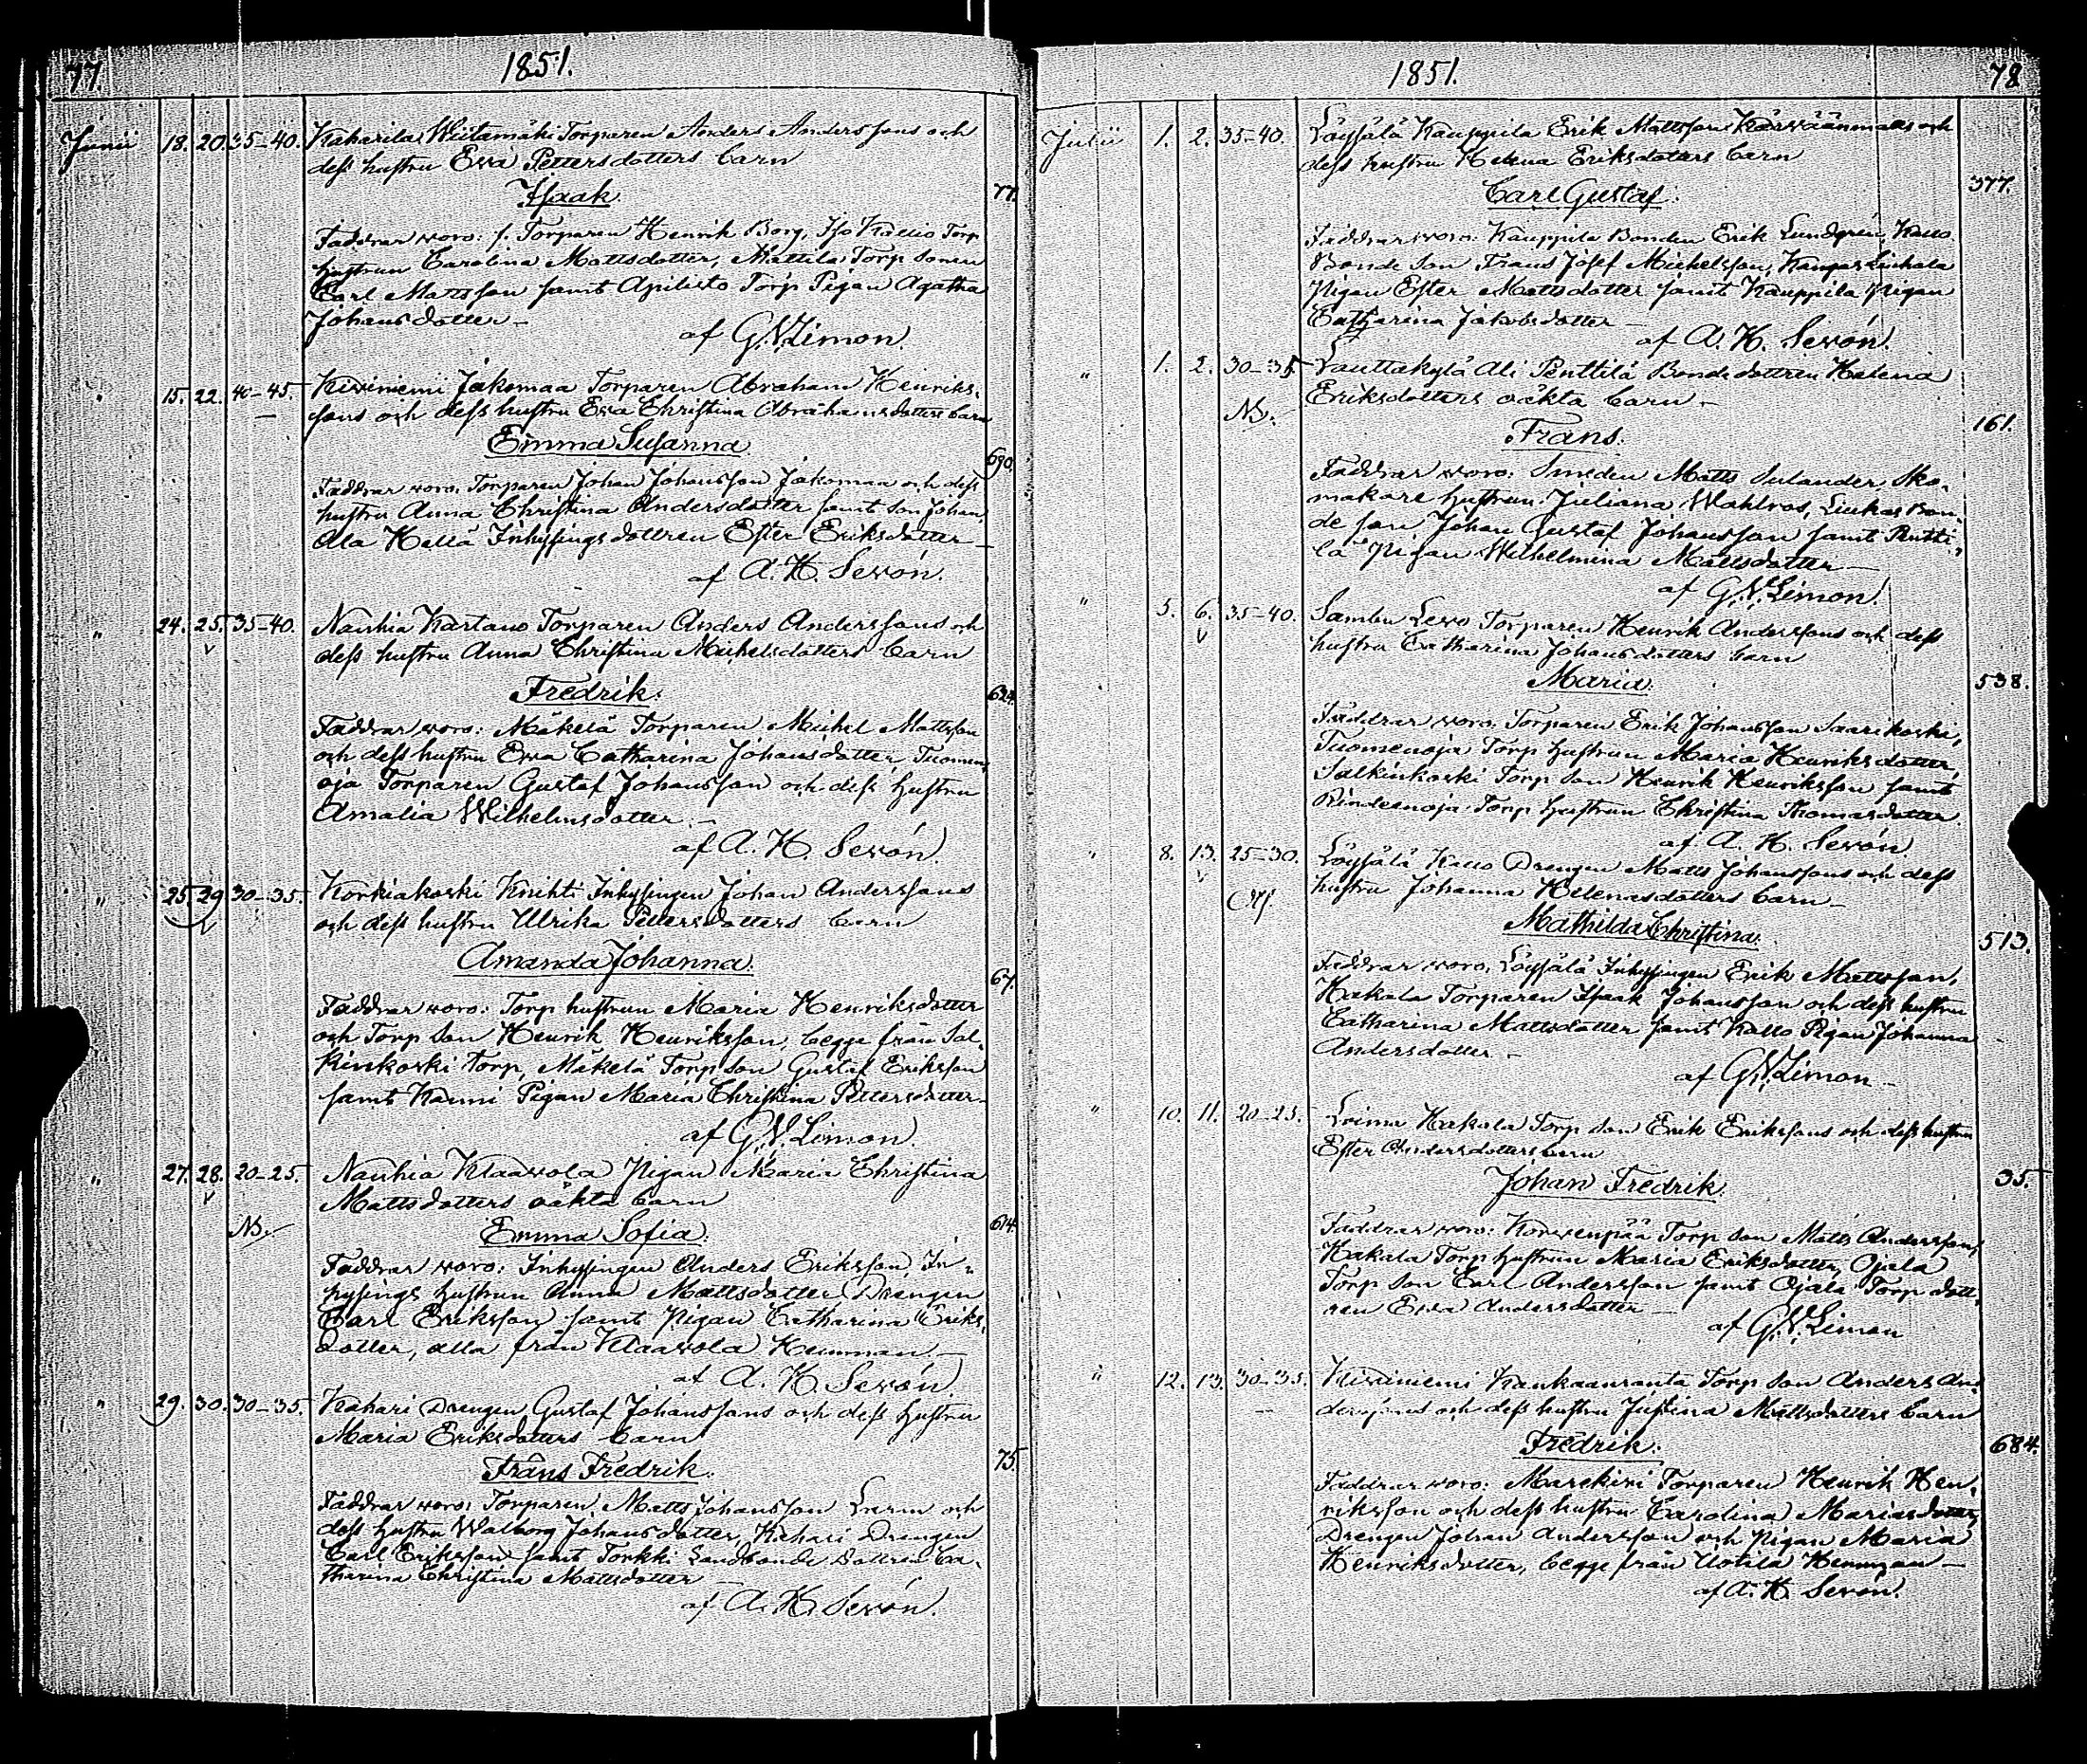 77.
1851.
Junii 18. 20. 35–40. Kaharila Wiitamäki Torparen Anders Anderssons och
dess hustru Eva Pettersdotters barn
Isaak 77.
Faddrar woro: f. Torparen Henrik Borg, Iso Kallio Torp
hustrun Carolina Mattsdotter, Mattila Torp sonen
Carl Mattsson samt Apilisto Torp Pigan Agatha
Johansdotter –
af G. V. Limon.
" 15. 22. 40–45. Kiviniemi Jakomaa Torparen Abraham Henriks-
sons och dess hustru Eva Christina Abrahamsdotters barn
Emma Susanna 690.
Faddrar woro: Torparen Johan Johansson Jakomaa och dess
hustru Anna Christina Andersdotter samt son Johan,
Ala Kellä Inhysings dottren Ester Eriksdotter –
af A. H. Sevón.
" 24. 25. 35–40. Nauhia Kartano Torparen Anders Anderssons och
dess hustru Anna Christina Michelsdotters barn
Fredrik. 624.
Faddrar woro: Mäkelä Torparen Michel Mattsson
och dess hustru Eva Catharina Johansdotter, Tuomen-
oja Torparen Gustaf Johansson och dess hustru
Amalia Wilhelmsdotter. –
af A. H. Sevón.
" 25. 29. 30–35. Korkiakoski Knihti Inhysingen Johan Anderssons
och dess hustru Ulrika Pettersdotters barn
Amanda Johanna. 67.
Faddrar woro: Torp hustrun Maria Henriksdotter
och Torp son Henrik Henriksson, begge från Sal-
kinkoski Torp, Mäkelä Torp son Gustaf Eriksson
samt Kauni Pigan Maria Christina Pettersdotter –
af G. V. Limon.
" 27. 28. 20–25. Nauhia Klaavola Pigan Maria Christina
Mattsdotters oäkta barn
Nb. Emma Sofia. 614.
Faddrar woro: Inhysingen Anders Eriksson, In-
hysings hustrun Anna Mattsdotter, Drengen
Carl Eriksson samt Pigan Catharina Eriks-
dotter, alla från Klaavola Hemman. –
af A. H. Sevón.
" 29. 30. 30–35. Kahari Drengen Gustaf Johanssons och dess hustru
Maria Eriksdotters barn
Frans Fredrik. 75.
Faddrar woro: Torparen Matts Johansson Larm och
dess hustru Walborg Johansdotter, Kahari Drengen
Carl Eriksson samt Torkki Landbonde Dottren Ca-
tharina Christina Mattsdotter –
af A. H. Sevón.
1851.
78.
Julii 1. 2. 35–40. Löysälä Kauppila Erik Mattsson Körväänmaas och
dess hustru Helena Eriksdotters barn
Carl Gustaf. 377.
Faddrar woro: Kauppila Bonden Erik Lundgrén, Kallo
Bonde Son Frans Josef Michelsson, Kangas Liuhala
Pigan Ester Mattsdotter samt Kauppila Pigan
Catharina Jakobsdotter –
af A. H. Sevón.
" 1. 2. 30–35. Lauttakylä Ali Penttilä Bonde dottren Helena
Eriksdotters oäkta barn –
Nb. Frans. 161.
Faddrar woro: Smeden Matts Sulander, Sko-
makare hustrun Juliana Wahlros, Liukas Bon-
de son Johan Gustaf Johansson samt Pentti-
lä Pigan Wilhelmina Mattsdotter –
af G. V. Limon.
" 5. 6. 35–40. Sambu Levo Torparen Henrik Anderssons och dess
hustru Catharina Johansdotters barn
Maria. 538.
Faddrar woro: Torparen Erik Johansson Saarikoski,
Tuomenoja Torp hustrun Maria Henriksdotter,
Salkinkoski Torp son Henrik Henriksson samt
Rindeenoja Torp hustrun Christina Thomasdotter.
af A. H. Sevón.
" 8. 13. 25–30. Löysälä Kallo Drengen Matts Johanssons och dess
hustru Johanna Helenasdotters barn –
Mathilda Christina. 513.
Faddrar woro: Löysälä Inhysingen Erik Mattsson,
Hakala Torparen Isaak Johansson och dess hustru
Catharina Mattsdotter samt Kallo Pigan Johanna
Andersdotter –
af G. V. Limon –
" 10. 11. 20–25. Loima Hakala Torp son Erik Erikssons och dess hustru
Ester Andersdotters barn
Johan Fredrik. 35.
Faddrar woro: Korvenpää Torp son Matts Andersson,
Hakala Torp hustrun Maria Eriksdotter, Ojala
Torp son Carl Andersson samt Ojala Torp dott-
ren Eva Andersdotter –
af G. V. Limon
" 12. 13. 30–35. Kiviniemi Kankaanranta Torp son Anders An-
derssons och dess hustru Justina Mattsdotters barn
Fredrik. 684.
Faddrar woro: Marckini Torparen Henrik Hen-
riksson och dess hustru Carolina Mariasdotter,
Drengen Johan Andersson och Pigan Maria
Henriksdotter, begge från Uotila Hemman –
af A. H. Sevón.